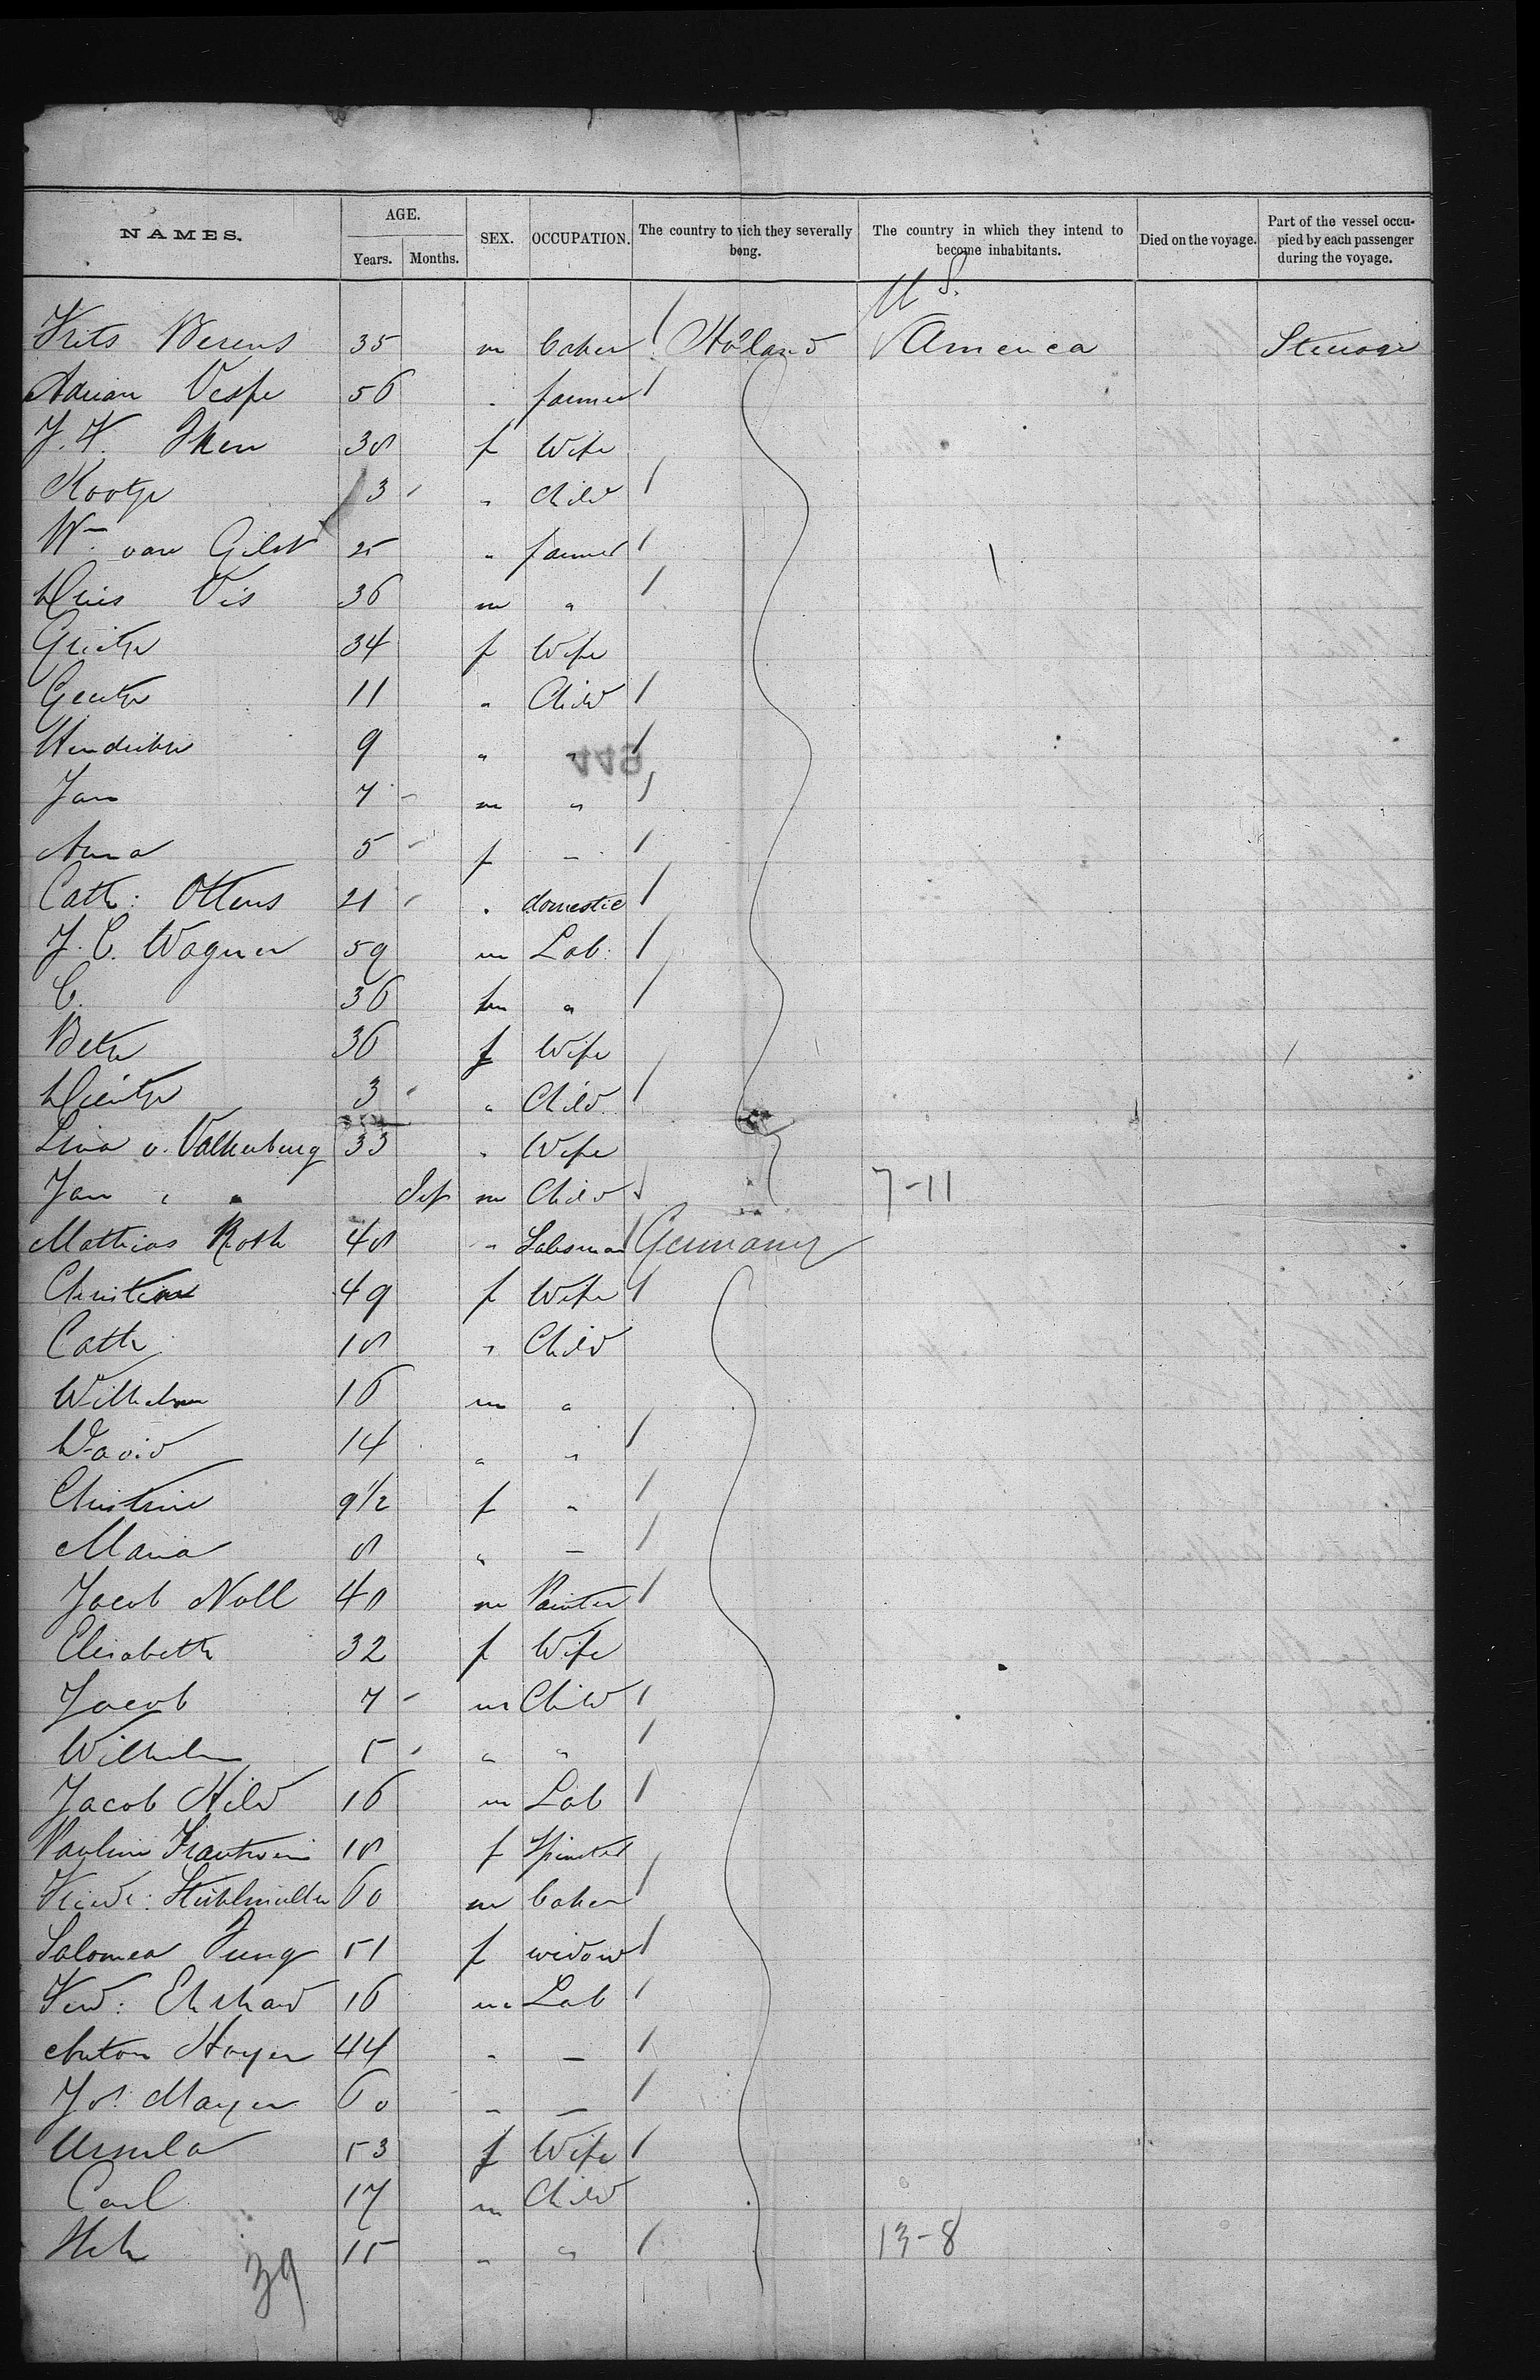 NAMES. AGE. Years. Months. SEX. OCCUPATION. The country to which they severally belong. The country in which they intend to become inhabitants. Died on the voyage. Part of the vessel occupied by each passenger during the voyage.
U S.
Frits Berens 35 m baker Holland America Steerage
Adrian Vespe 56 " farmer
J. F. 38 f Wife
Kootje 3 " Child
Wm van Gilst 25 " farmer
Diris Vis 36 m "
Grietje 34 f Wife
Geertje 11 " Child
Hendrikje 9 " " 449
Jan 7 m "
Anna 5 f "
Cath: Ottens 21 " domestic
J. C. Wagner 59 m Lab.
C. 36 m "
Betje 36 f Wife
Dientje 3 " Child
Lina v. Valkenburg 33 " Wife
Jan " " Inf m Child 7-11
Mathias Roth 48 " Labsman Germany
Christine 49 f Wife
Cath 18 " Child
Wilhelm 16 m "
David 14 " "
Christine 9 1/2 f "
Maria 8 " "
Jacob Noll 40 m Painter
Elisabeth 32 f Wife
Jacob 7 m Child
Wilhelm 5 " "
Jacob Hild 16 m Lab
Pauline Trautwein 18 f Spinster
Friedr: Stühlmüller 60 m baker
Salomea Jung 51 f widow
Ferd: Ehrhard 16 m Lab
Anton Hoyer 44 " "
Jos. Mayer 60 " "
Ursula 53 f Wife
Carl 17 m Child
15 " " 13-8
39